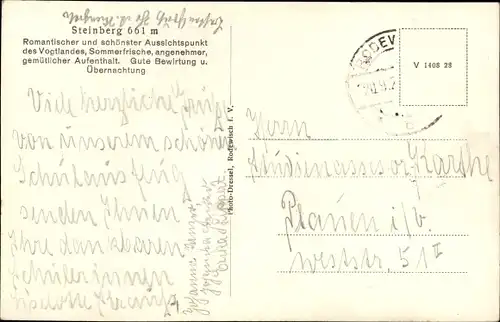 Steinberg 661 m
Romantischer und schönster Aussichtspunkt
des Vogtlandes, Sommerfrische, angenehmer,
gemütlicher Aufenthalt. Gute Bewirtung u.
Übernachtung
Viele herzliche Grüße
von unserem schönen
Schulausflug
senden Ihnen
Ihre dankbaren
Schülerinnen
Photo-Dressel, Rodewisch i. V.
RODEW
V 1408 28
Herrn
Studienassessor Karthe
Plauen i/V.
Weststr. 51 II